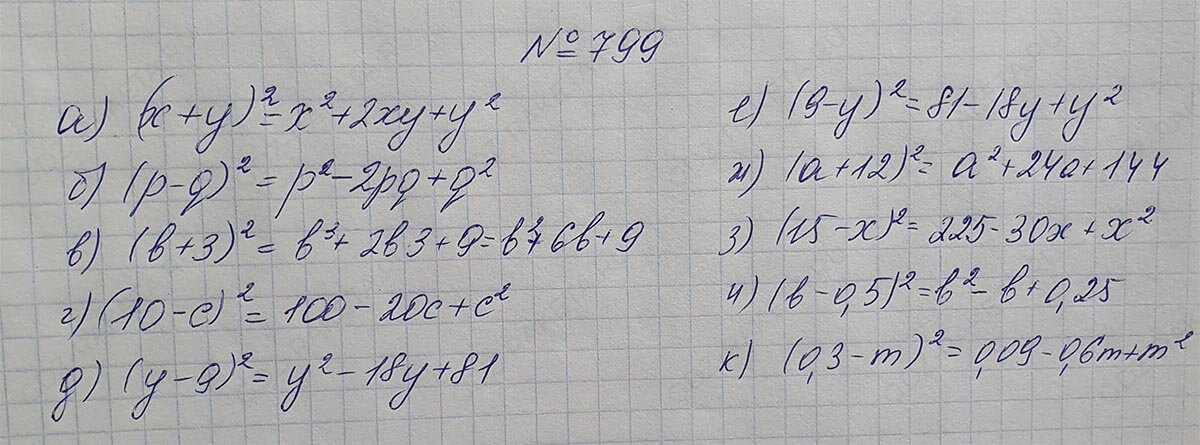 №799
а) (x+y)²=x²+2xy+y²
б) (p-q)²=p²-2pq+q²
в) (b+3)²=b³+2b3+9=b²+6b+9
г) (10-c)²=100-20c+c²
д) (y-9)²=y²-18y+81
е) (9-y)²=81-18y+y²
ж) (a+12)²=a²+24a+144
з) (15-x)²=225-30x+x²
и) (b-0,5)²=b²-b+0,25
к) (0,3-m)²=0,09-0,6m+m²